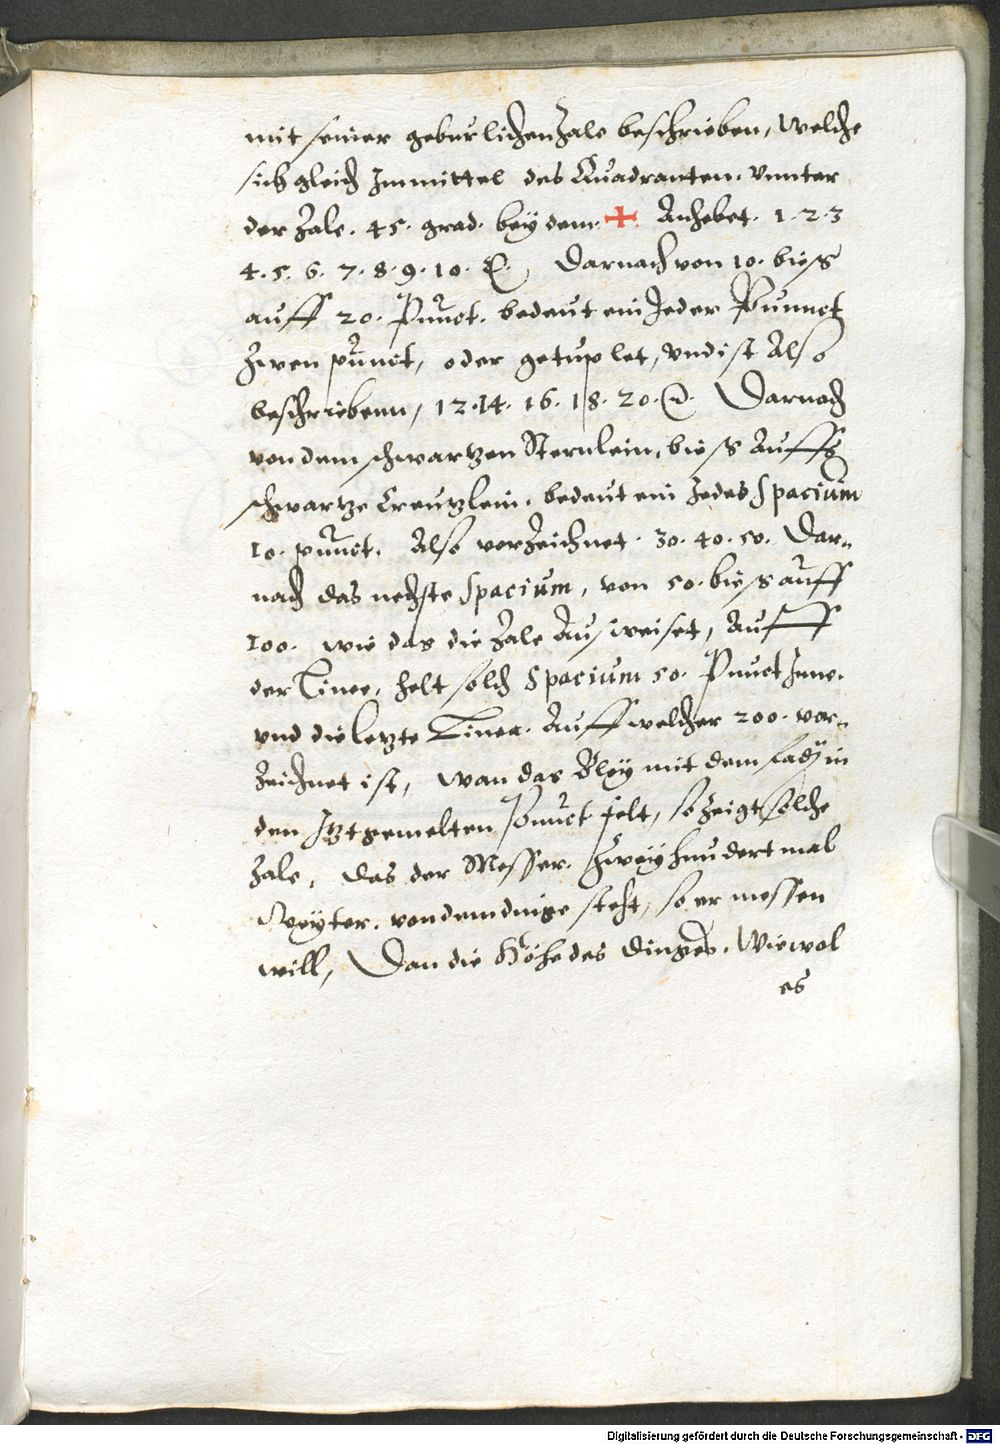 mit seiner geburlichen Zale beschrieben, Welche
sich gleich Im mittel des Quadranten. Vnnter
der Zale. 45. grad. bey dem. + Anhebet. 1. 2. 3
4. 5. 6. 7. 8. 9. 10. Darnach von 10. biess
auff 20. Punct. bedeut ein Jeder Punnct
Zwen punct, oder getuplet, vnd ist Also
beschriebenn, 12. 14. 16. 18. 20. Darnach
von dem schwartzen Sternlein, biess Auffs
schwartze Creutzlein. bedeut ein Jedes Spacium
10. punct. Also verZeichnet. 30. 40. 50. Dar-
nach das nechste Spacium, von 50. biess auff
100. wie das die Zale Ausweiset, Auff
der Linee, helt solch Spacium 50. Punct Inne.
vnd die letzte Linea. Auff welcher 200. vor-
Zeichnet ist, wan das Bley mit dem fady in
den Itztgemelten Punct felt, so Zeigt solche
Zale, das der Messer. Zweyhundert mal
Weyter. von dem dinge steht, so er messen
will, Dan die Höhe des dinges. Wiewol
es
Digitalisierung gefördert durch die Deutsche Forschungsgemeinschaft - DFG